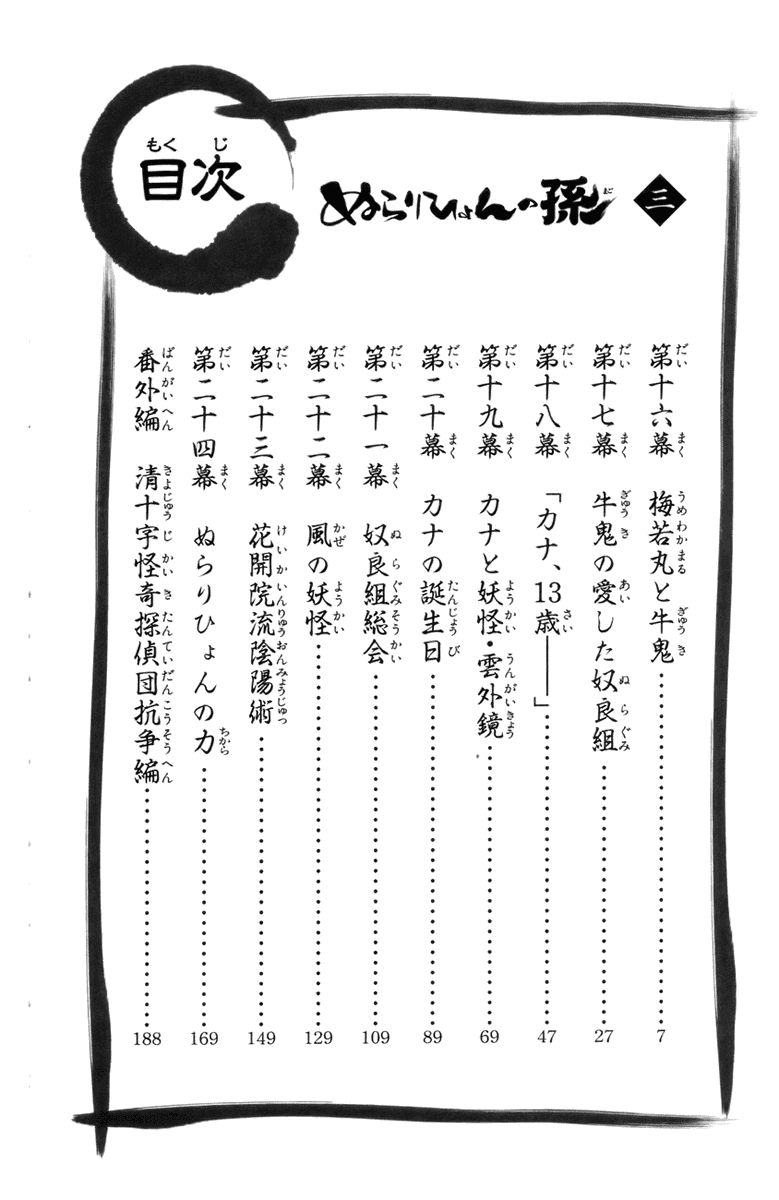 三
ぬらりひょんの孫
目次
第十六幕 梅若丸と牛鬼……7
第十七幕 牛鬼の愛した奴良組……27
第十八幕 「カナ、13歳――」……47
第十九幕 カナと妖怪・雲外鏡……69
第二十幕 カナの誕生日……89
第二十一幕 奴良組総会……109
第二十二幕 風の妖怪……129
第二十三幕 花開院流陰陽術……149
第二十四幕 ぬらりひょんの力……169
番外編 清十字怪奇探偵団抗争編……188